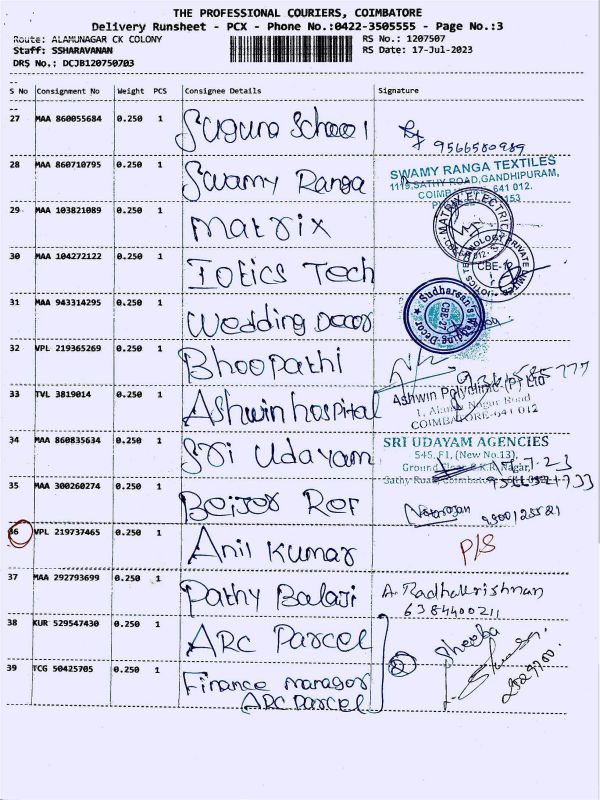 THE PROFESSIONAL COURIERS, COIMBATORE
Delivery Runsheet - PCX - Phone No.:0422-3505555 - Page No.:3
Route: ALAMUNAGAR CK COLONY RS No.: 1207507
Staff: SSHARAVANAN RS Date: 17-Jul-2023
DRS No.: DCJB120750703
S No Consignment No Weight PCS Consignee Details Signature
27 MAA 860055684 0.250 1 Suguna School 9566580989
28 MAA 860710795 0.250 1 Swamy Ranga
SWAMY RANGA TEXTILES
1119,SATHY ROAD,GANDHIPURAM,
641 012.
29 MAA 103821089 0.250 1 Matrix
MATRIX ELECTRIC
30 MAA 104272122 0.250 1 Iotics Tech
CBE-12
31 MAA 943314295 0.250 1 Wedding Decor
Sudharsan's Wedding Decor
CBE-27
32 VPL 219365269 0.250 1 Bhoopathi
33 TVL 3819014 0.250 1 Ashwin hospital
Ashwin Polyclinic (P) Ltd
1, Alamu Nagar Road
COIMBATORE-641 012
34 MAA 860835634 0.250 1 Sri Udayam
SRI UDAYAM AGENCIES
545, F1, (New No.13),
Ground Floor, P.K.R. Nagar,
Sathy Road, Coimbatore
35 MAA 300260274 0.250 1 Beijer Ref Natarajan
36 VPL 219737465 0.250 1 Anil Kumar P/S
37 MAA 292793699 0.250 1 Pathy Balaji A. Radhakrishnan
6384400211
38 KUR 529547430 0.250 1 ARC Parcel Sheeba
39 TCG 50425705 0.250 1 Finance manager
ARC Parcel